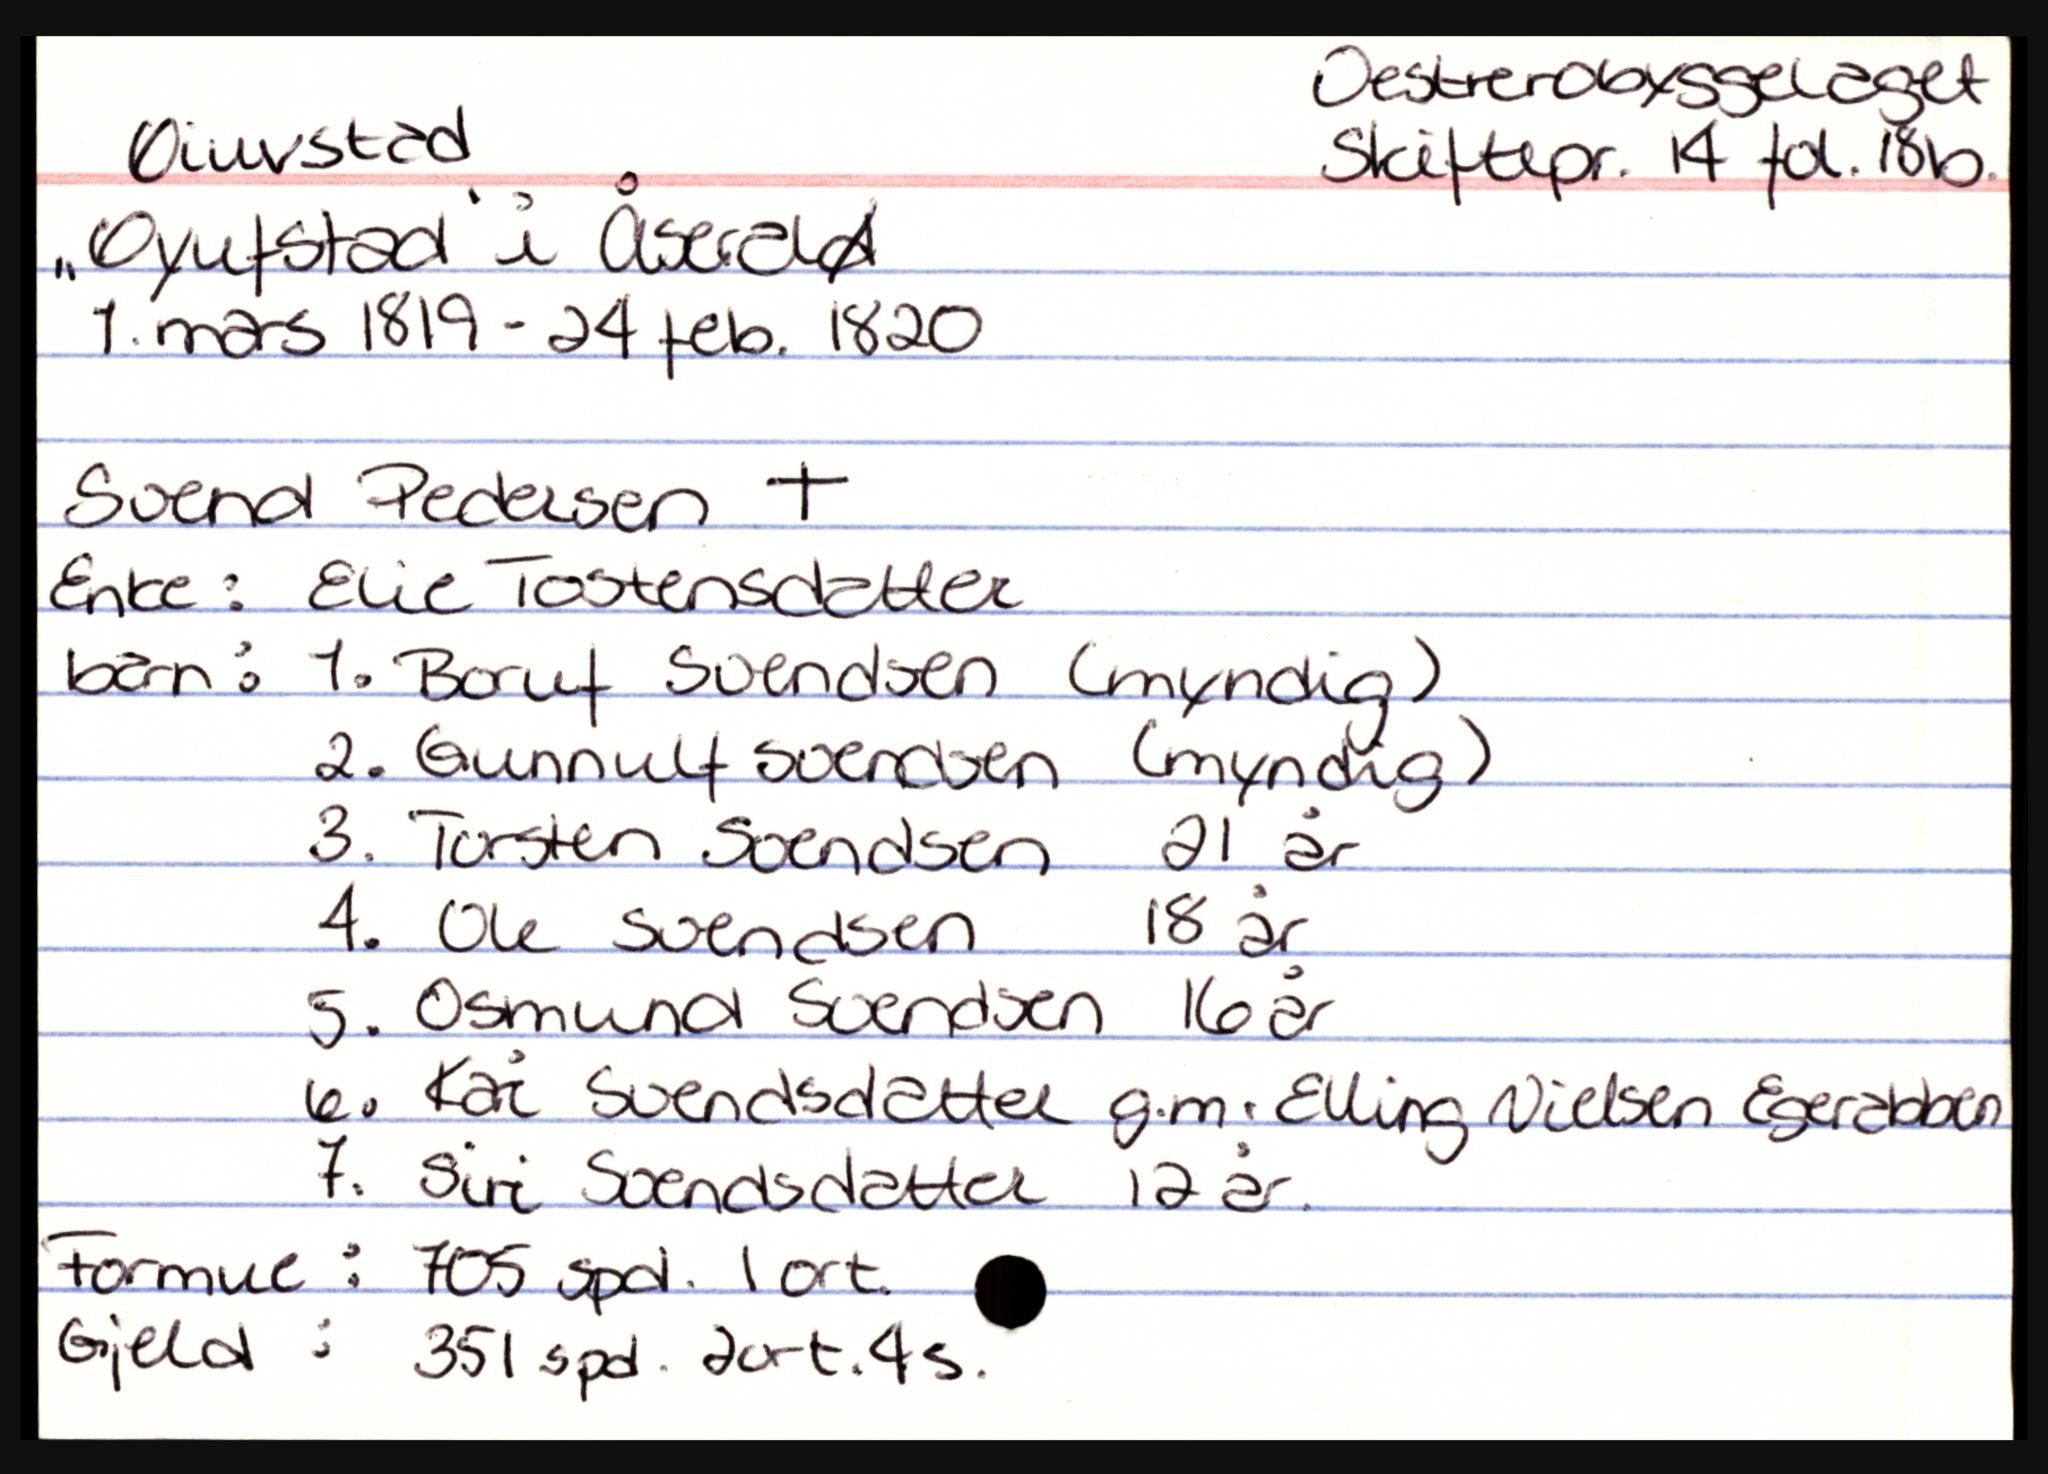 Oestrerobyggelaget
Øiuvstad
Skiftepr. 14 fol. 18b.
„Øyufstad" i Åseral
1. mars 1819 - 24 feb. 1820
Svend Pedersen +
Enke: Elie Tostensdatter
barn: 1. Boruf Svendsen (myndig)
2. Gunnulf Svendsen (myndig)
3. Torsten Svendsen 21 år
4. Ole Svendsen 18 år
5. Osmund Svendsen 16 år
6. Kari Svendsdatter g.m. Elling Nielsen Egerabben
7. Siri Svendsdatter 12 år.
Formue: 705 spd. 1 ort.
Gjeld: 351 spd. 2ort. 4 s.